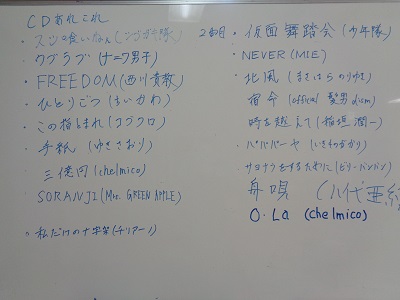 CDあれこれ
・ウブラブ(ナニワ男子)
・FREEDOM(西川貴教)
・ひとりごつ(ちいかわ)
・この指とまれ(コブクロ)
・手紙(ゆきさおり)
三億円(chelmico)
SORANJI(Mrs. GREEN APPLE)
・私だけの十字架(チリアーノ)
2番目・仮面舞踏会(少年隊)
NEVER(MIE)
・北風(まきはらのりゆき)
宿命(official髭男dism)
時を越えて(稲垣潤一)
・パパパーヤ(いきものがかり)
サヨナラをするために(ビリーバンバン)
舟唄 (八代亜紀
O・La (chelmico)